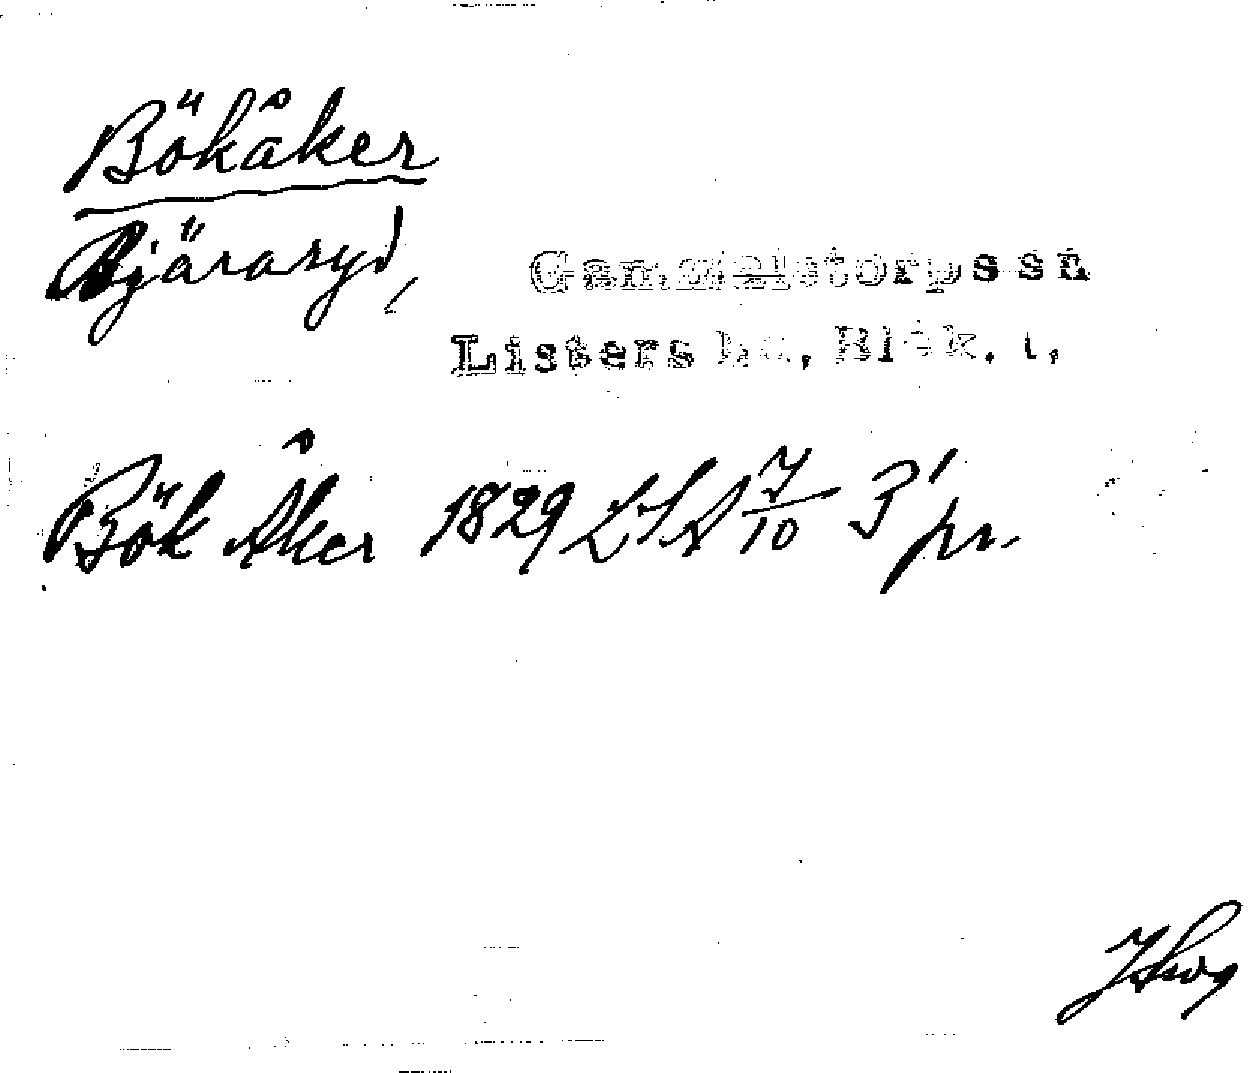 Bökåker
Bjäraryd, Gammalstorps sn
Listers hd, Blek. l,
Bök Åker 1829 LSA 7/10 3' pr.